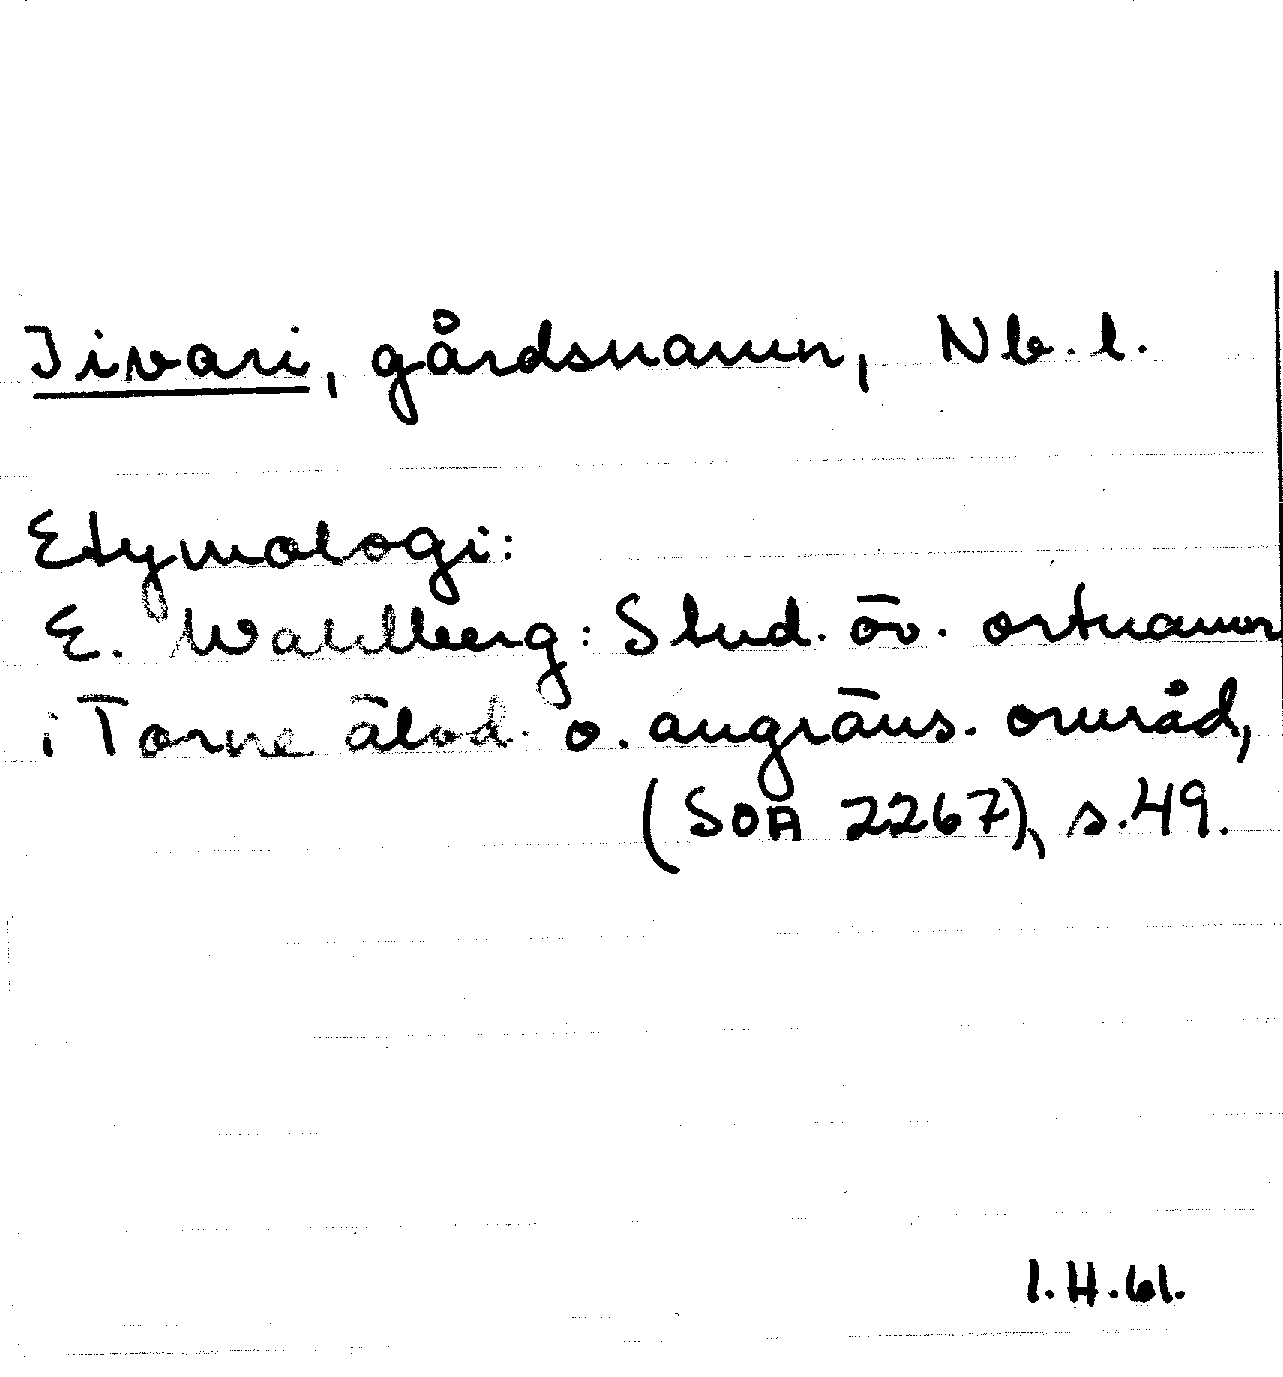 Iivari, gårdsnamn, Nb. l.
Etymologi:
E. Wahlberg: Stud. öv. ortnamn
i Torne älvd. o. angräns. område,
(SOA 2267), s.49.
I.H.61.